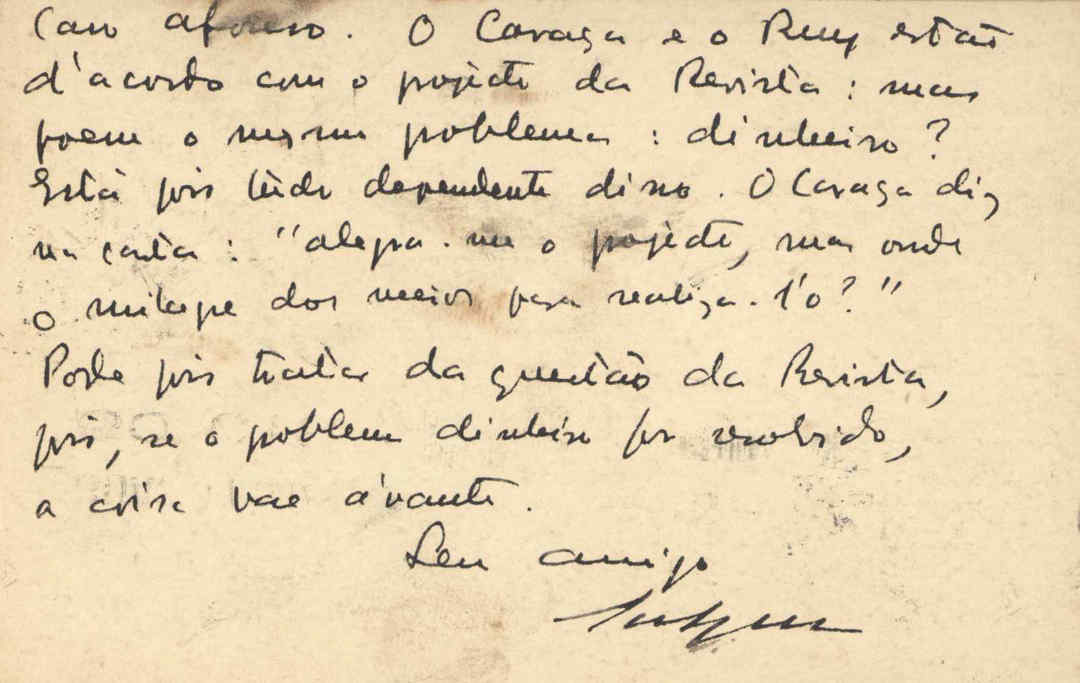 Caro Afonso. O Caraça e o Ruy estão
d'acordo com o projecto da Revista: mas
poem o mesmo problema: dinheiro?
Está pois tudo dependente disso. O Caraça diz
na carta: "alegra-me o projecto, mas onde
o milagre dos meios para realiza-l'o?"
Pode pois tratar da questão da Revista,
pois, se o problema dinheiro for resolvido,
a coisa vae ávante.
Seu amigo